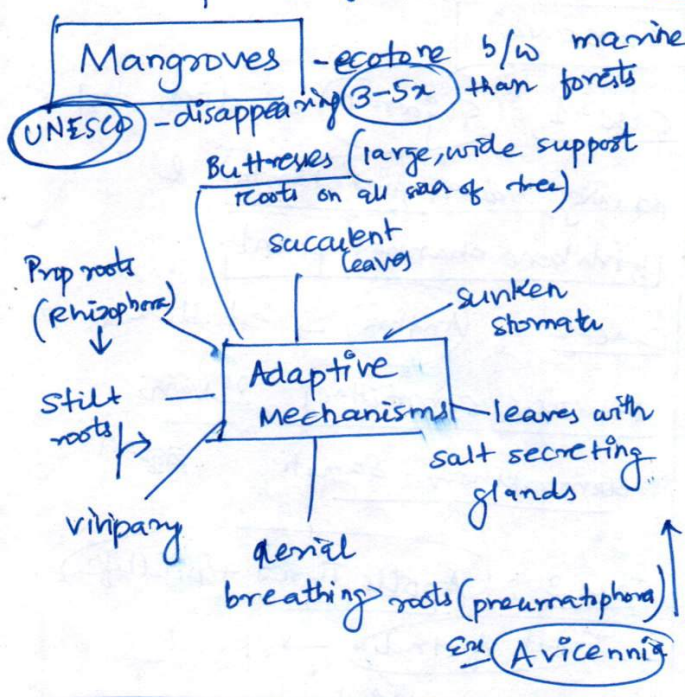 Mangroves - ecotone b/w marine
UNESCO - disappearing 3-5x than forests
Buttresses (large, wide support
roots on all sides of tree)
succulent
leaves
Prop roots
(Rhizophora)
sunken
stomata
Adaptive
Mechanisms
Stilt
roots
leaves with
salt secreting
glands
vivipary
aerial
breathing roots (pneumatophora)
Ex Avicennia